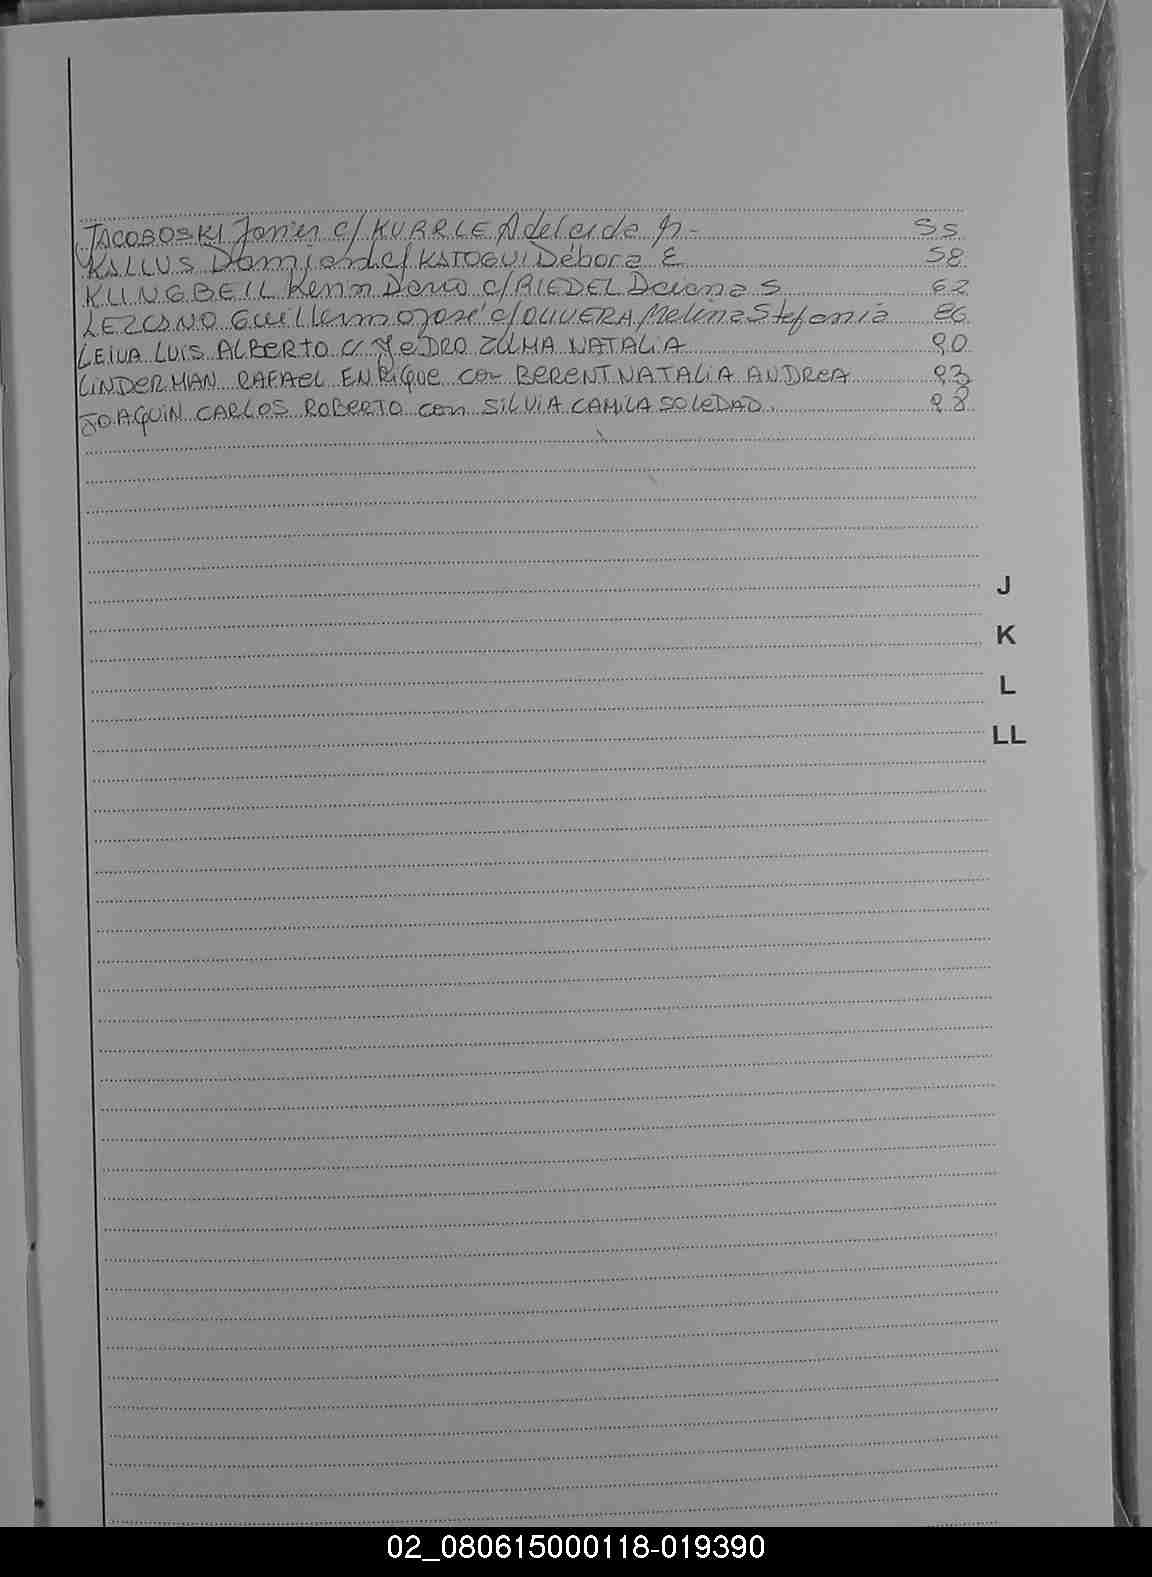 JACOBOSKI Javier c/ KURRLE Adelaida M- 55
KALLUS Damian d c/ KATOGUI Débora E 58
KLINGBEIL Kevin Dario c/ RIEDEL Daiana S 62
LEZCANO Guillermo José c/ OLIVERA Melina Stefania 86
LEIVA LUIS ALBERTO c/ YEDRO ZULMA NATALIA 90
LINDERMAN RAFAEL ENRIQUE con BERENT NATALIA ANDREA 93
JOAQUIN CARLOS ROBERTO con SILVIA CAMILA SOLEDAD. 98
J
K
L
LL
02_080615000118-019390